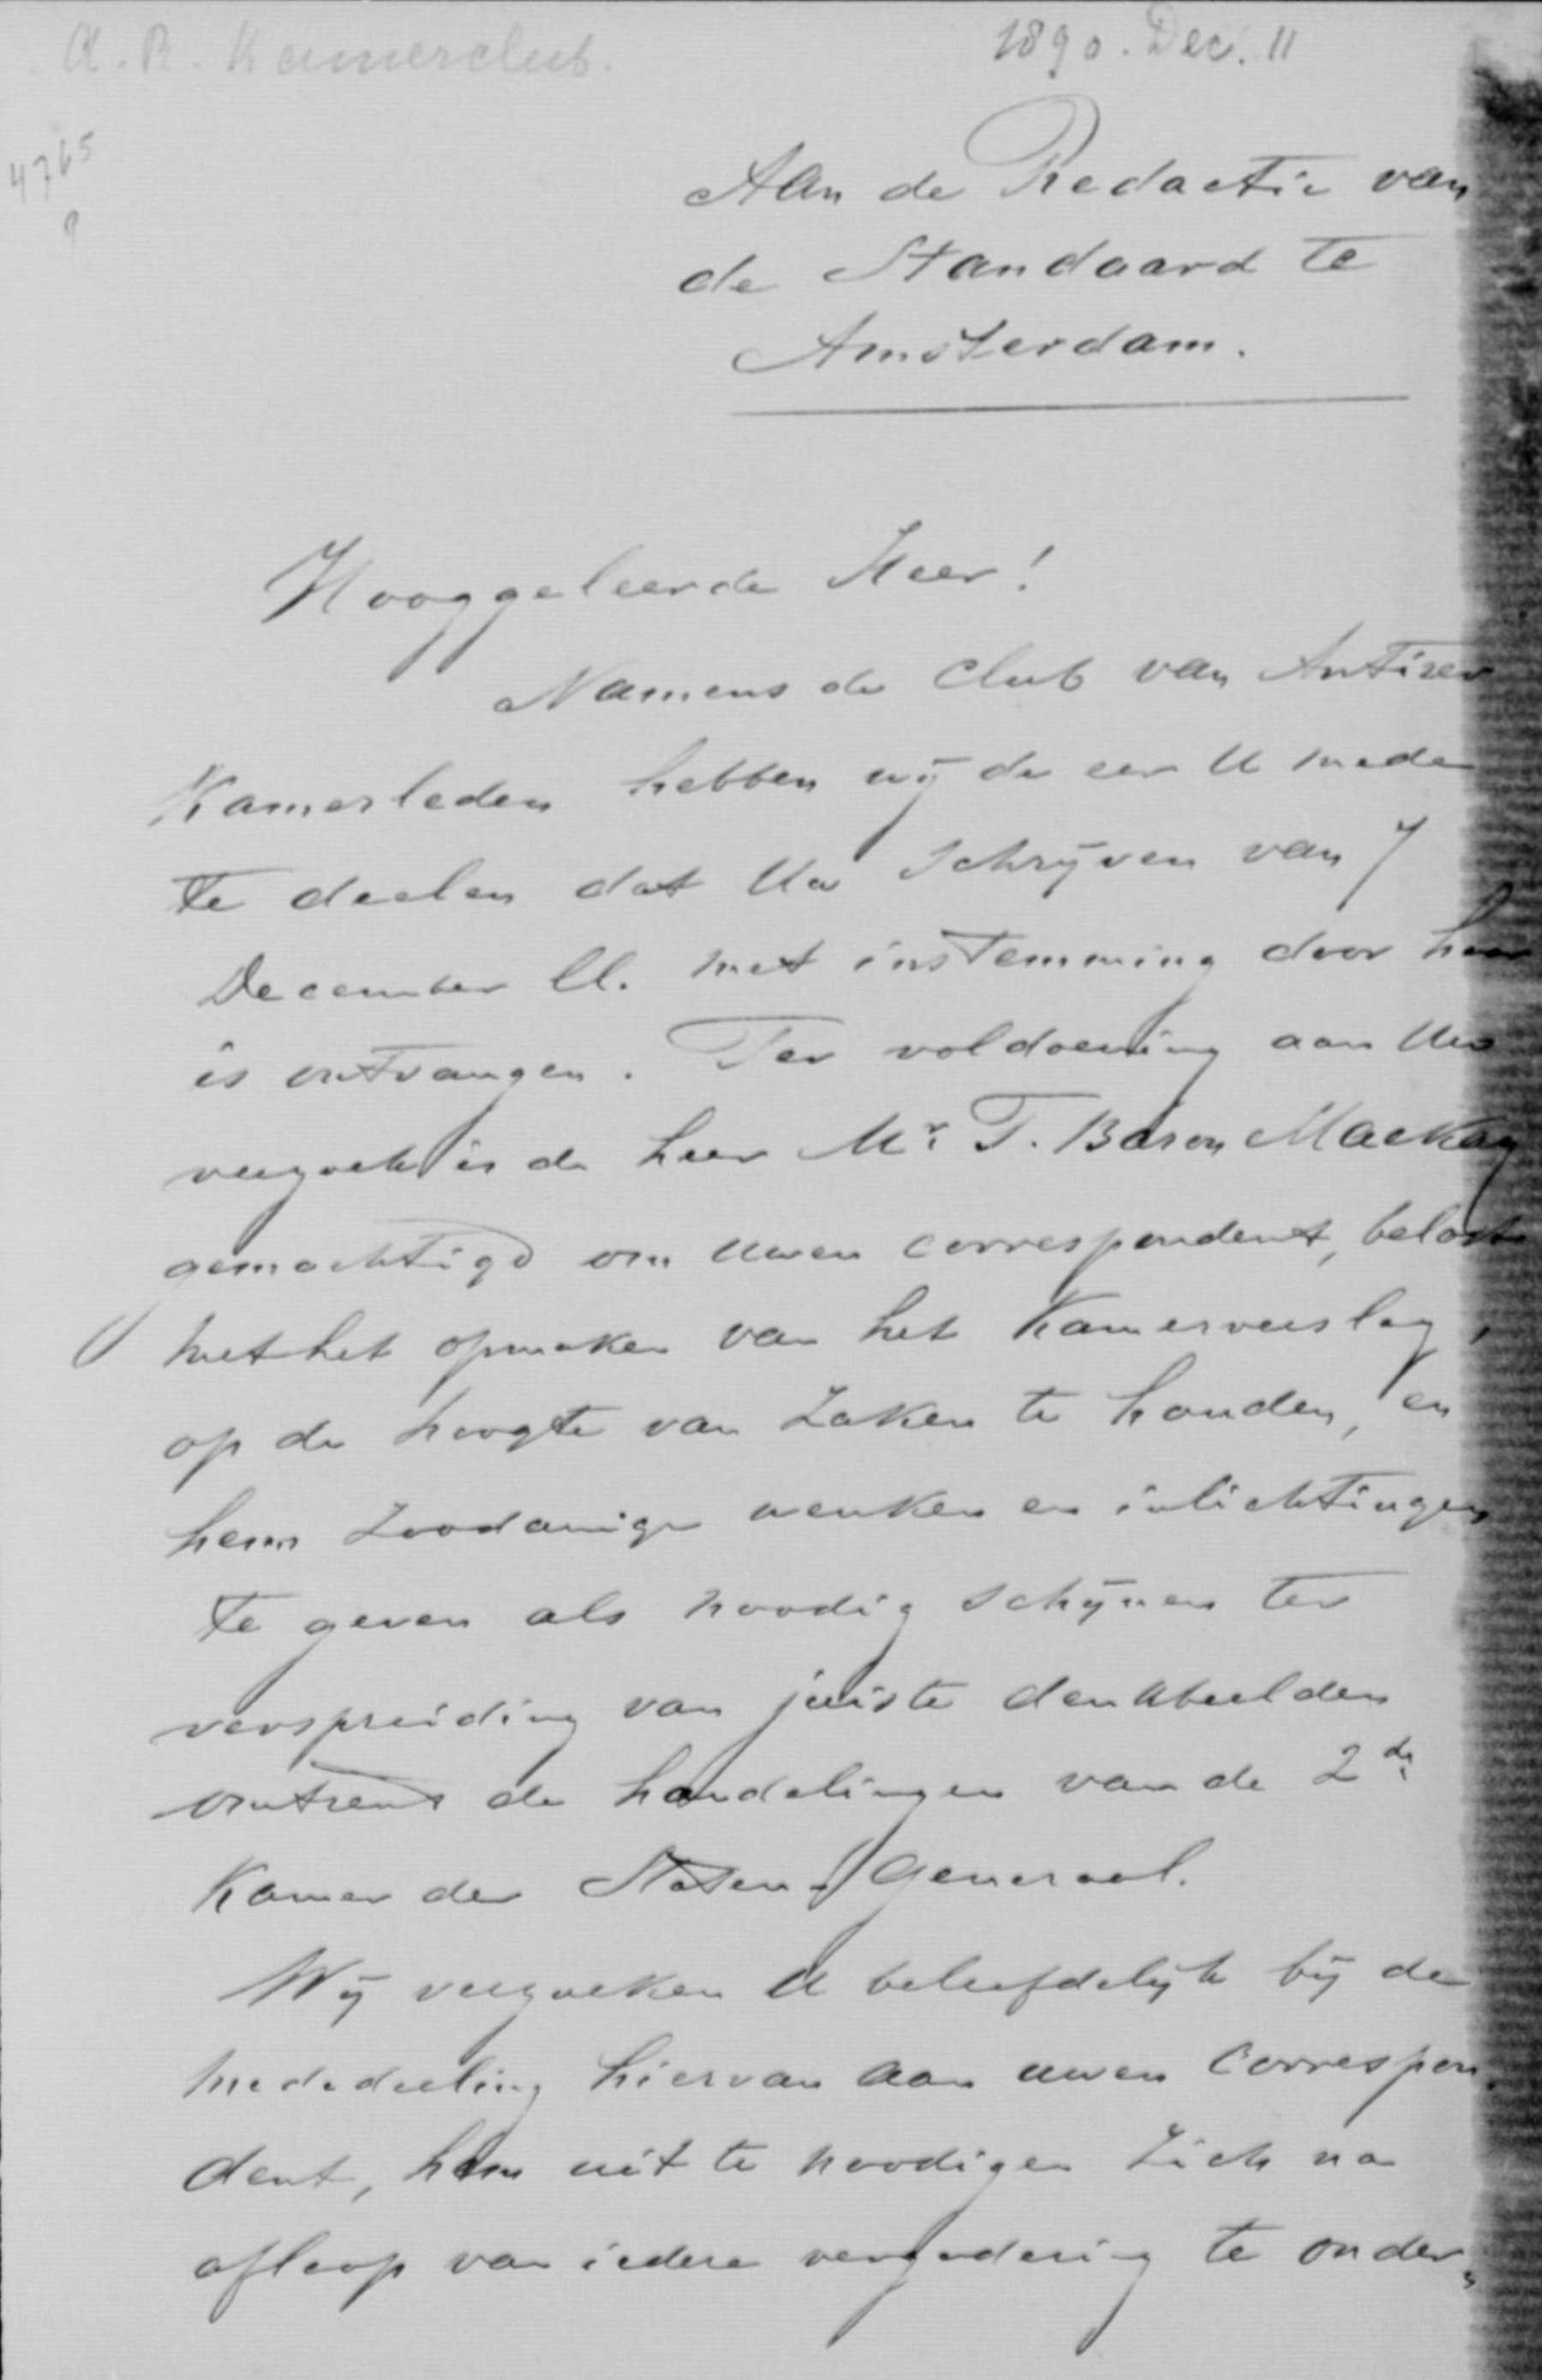 A. R. Kamerclub.
1890. Dec. 11
4765
Aan de Redactie van
de Standaard te
Amsterdam.
Hooggeleerde Heer!
Namens de Club van Antirev
Kamerleden hebben wij de eer U mede
te deelen dat Uw schrijven van 7
December ll. met instemming door haar
is ontvangen. Ter voldoening aan Uw
verzoek is de heer Mr. T. Baron Mackay
gemachtigd om uwen correspondent, belast
met het opmaken van het Kamerverslag,
op de hoogte van zaken te houden, en
hem zoodanige wenken en inlichtingen
te geven als noodig schijnen ter
verspreiding van juiste denkbeelden
omtrent de handelingen van de 2de
Kamer der Staten-Generaal.
Wij verzoeken U beleefdelijk bij de
mededeeling hiervan aan uwen correspon
dent, hem uit te noodigen zich na
afloop van iedere vergadering te onder